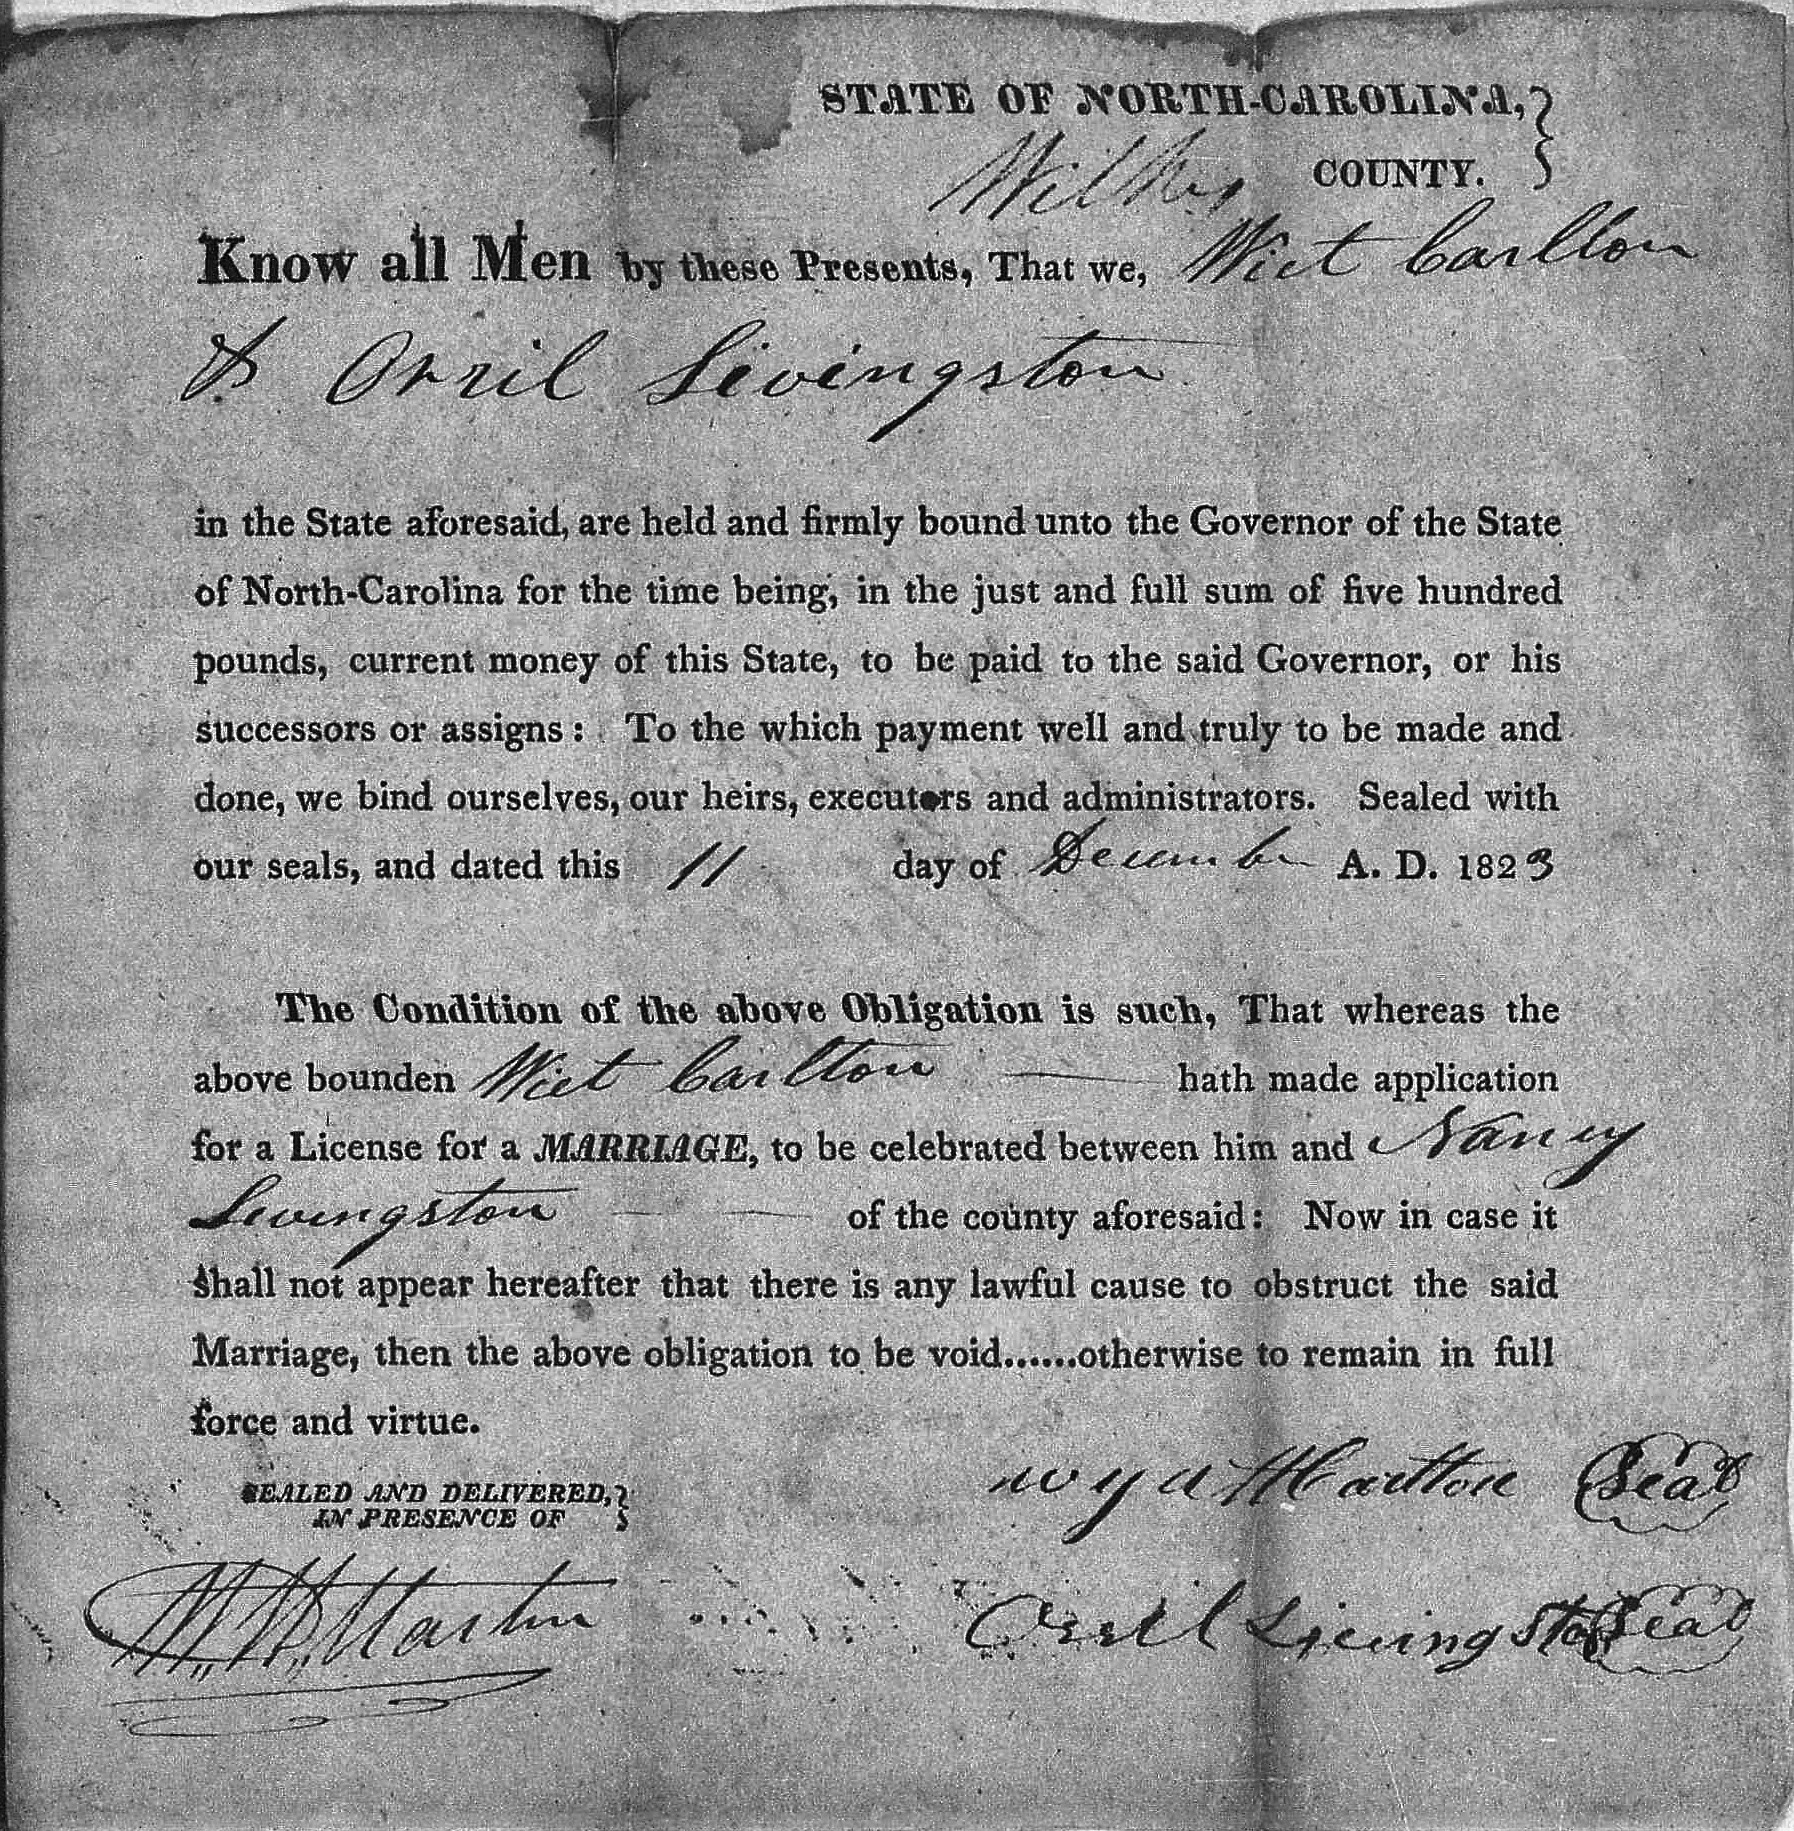 STATE OF NORTH-CAROLINA,
Wilkes COUNTY.
Know all Men by these Presents, That we, Wiet Carlton
& Orril Livingston
in the State aforesaid, are held and firmly bound unto the Governor of the State
of North-Carolina for the time being, in the just and full sum of five hundred
pounds, current money of this State, to be paid to the said Governor, or his
successors or assigns: To the which payment well and truly to be made and
done, we bind ourselves, our heirs, executors and administrators. Sealed with
our seals, and dated this 11 day of December A. D. 1823
The Condition of the above Obligation is such, That whereas the
above bounden Wiet Carlton hath made application
for a License for a MARRIAGE, to be celebrated between him and Nancy
Livingston of the county aforesaid: Now in case it
shall not appear hereafter that there is any lawful cause to obstruct the said
Marriage, then the above obligation to be void......otherwise to remain in full
force and virtue.
SEALED AND DELIVERED,
IN PRESENCE OF
wyatt Carlton Seal
Orril Livingston Seal
Martin